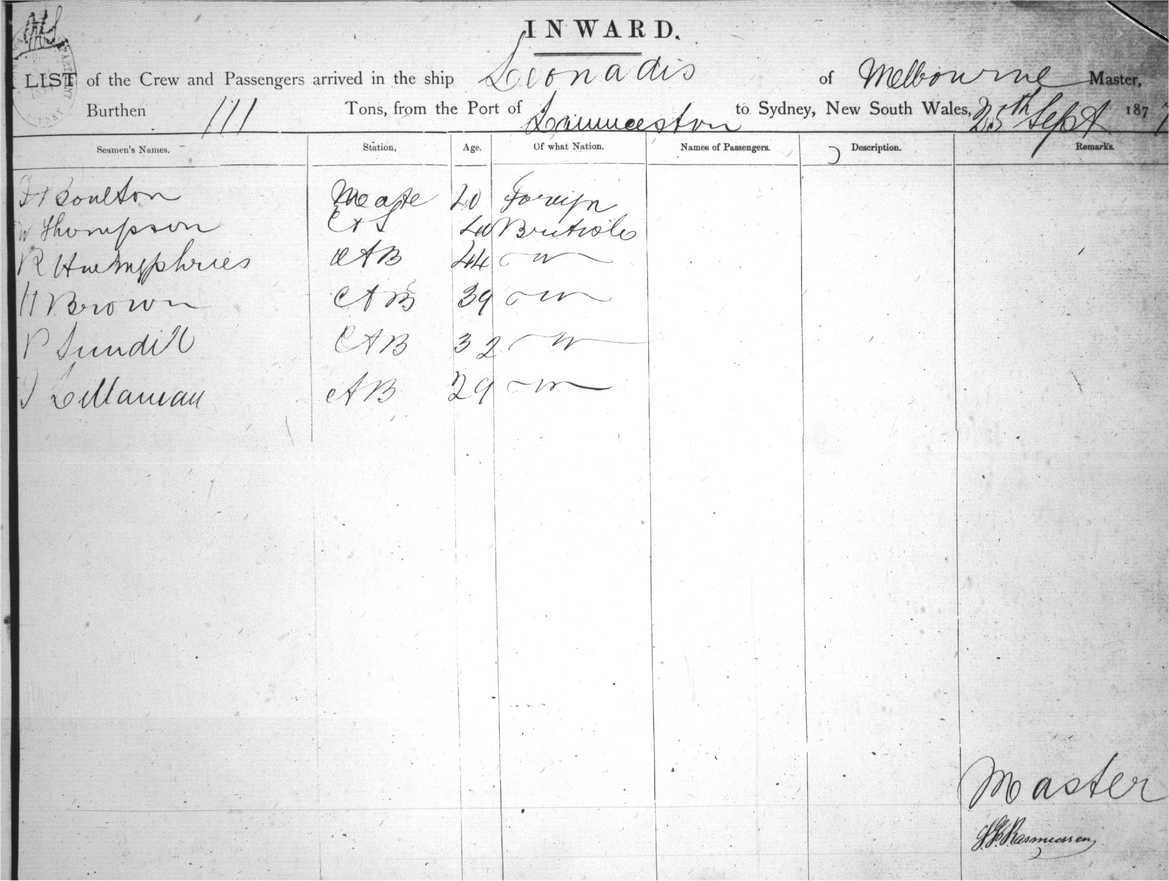 INWARD.
LIST of the Crew and Passengers arrived in the ship Leonadis of Melbourne Master,
Burthen 111 Tons, from the Port of Launceston to Sydney, New South Wales, 25th Sept 187
Seamen's Names. Station, Age. Of what Nation. Names of Passengers. Description. Remarks.
Boulton Mate 20 Foreign
W Thompson 40 British
R Humphries AB 44
H Brown AB 39
P AB 32
AB 29
Master
Rasmussen